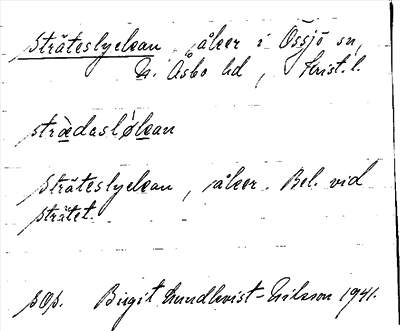 Sträteslyckan, åker i Össjö sn,
N. Åsbo hd, Krist. l.
strædasløkan
Sträteslyckan, åker. Bel. vid
strätet.
pop. Birgit Lundkvist-Nilsson 1941.